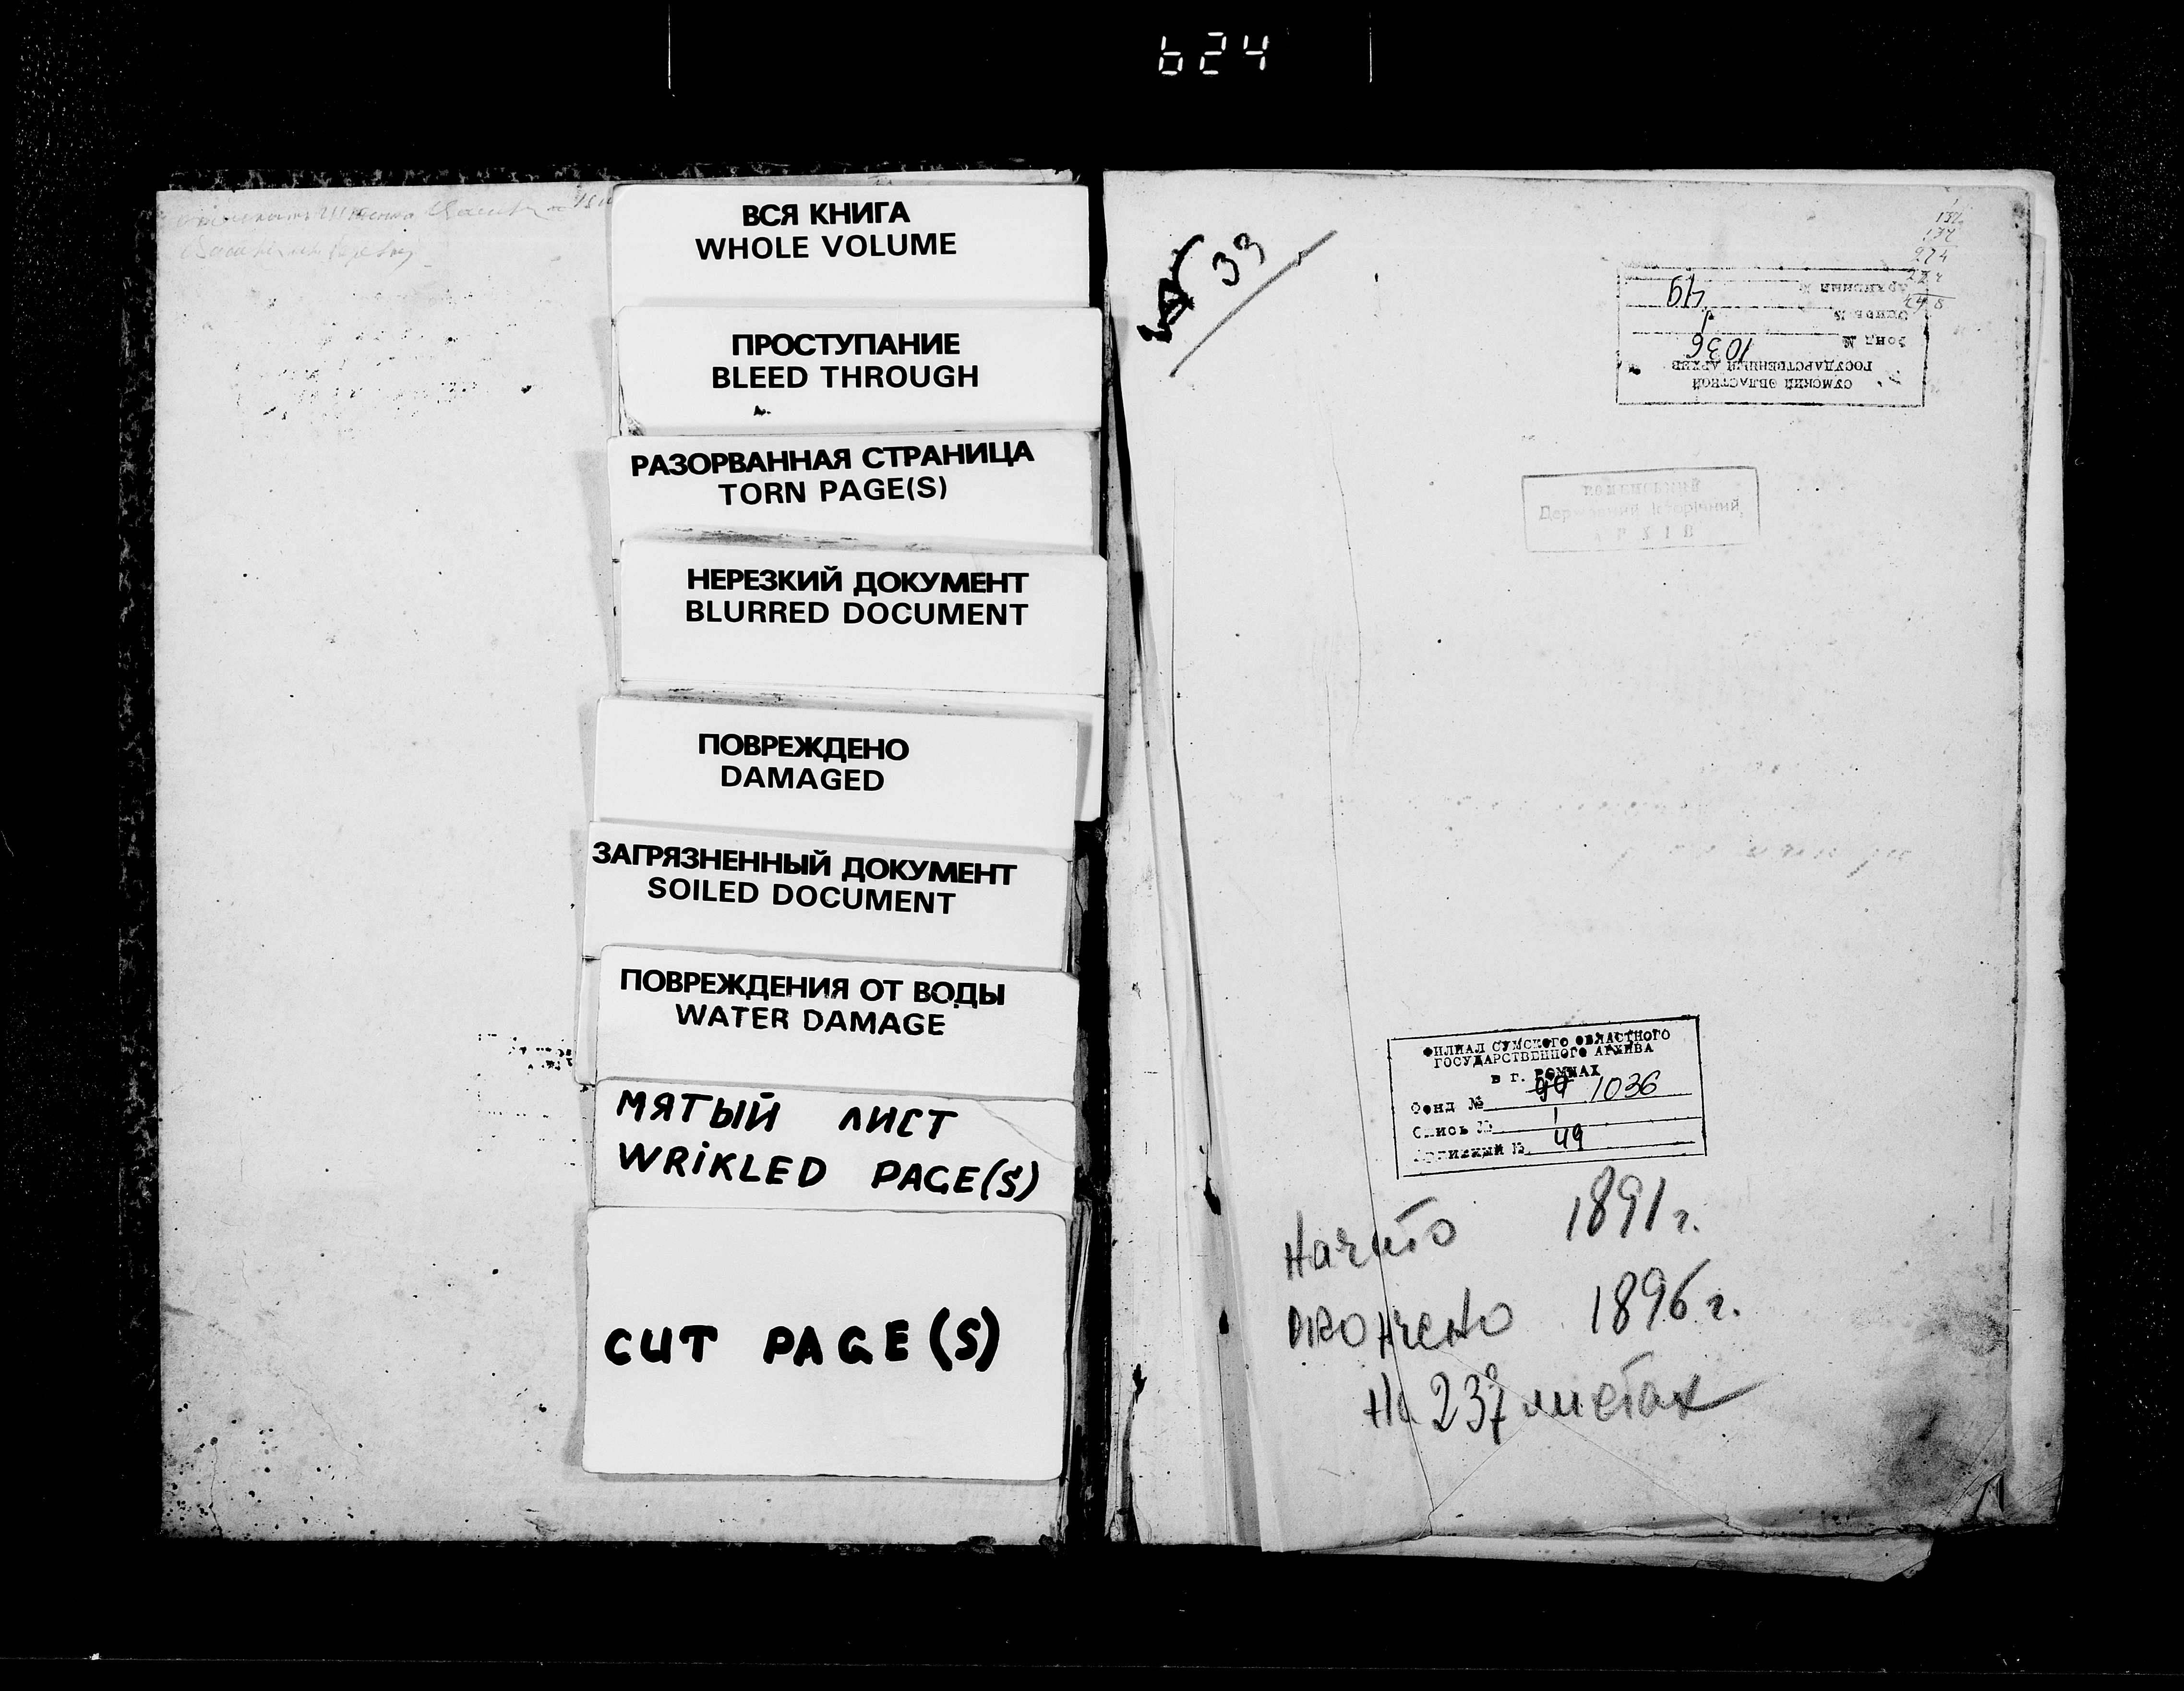 624
ВСЯ КНИГА
WHOLE VOLUME
ПРОСТУПАНИЕ
BLEED THROUGH
РАЗОРВАННАЯ СТРАНИЦА
TORN PAGE(S)
НЕРЕЗКИЙ ДОКУМЕНТ
BLURRED DOCUMENT
ПОВРЕЖДЕНО
DAMAGED
ЗАГРЯЗНЕННЫЙ ДОКУМЕНТ
SOILED DOCUMENT
ПОВРЕЖДЕНИЯ ОТ ВОДЫ
WATER DAMAGE
МЯТЫЙ ЛИСТ
WRIKLED PAGE(S)
CUT PAGE(S)
33
СУМСКИЙ ОБЛАСТНОЙ
ГОСУДАРСТВЕННЫЙ АРХИВ
Фонд № 1036
Опись № 1
Архивный № 49
Роменський
Державний Історичний
АРХІВ
ФИЛИАЛ СУМСКОГО ОБЛАСТНОГО
ГОСУДАРСТВЕННОГО АРХИВА
в г. РОМНАХ
Фонд № 1036
Опись № 1
Архивный № 49
Начато 1891 г.
Окончено 1896 г.
На 237 листах